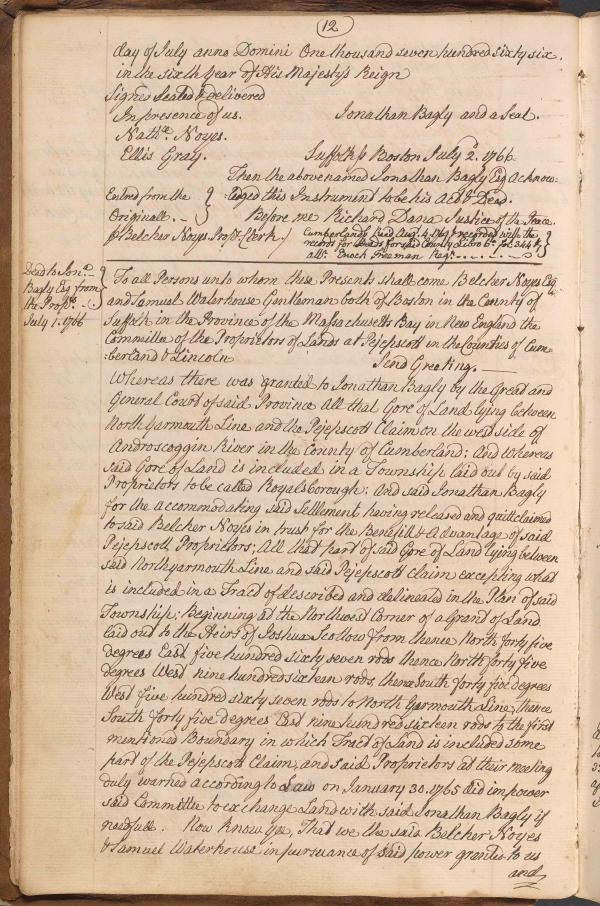 12
day of July anno Domini One thousand seven hundred sixty six.
in the sixth Year of His Majesty's Reign
Signed Sealed & delivered
In presence of us. Jonathan Bagly and a Seal.
Nathe. Noyes.
Ellis Gray. Suffolk ss Boston July 2d. 1766
Then the above named Jonathan Bagly Esq Acknow:
Entred from the :ledged this Instrument to be his Act & Deed.
Originall. - Before me Richard Dana Justice of the Peace.
p Belcher Noyes Propr. Clerk. Cumberland ss Recd. Aug. 4. 1767 & recorded with the
records for Deeds for said County Libro 6o. fol. 244 &
attr. Enoch Freeman Regr.
Deed to Jona.
Bagly Esq from
the Proprs.
July 1. 1766
To all Persons unto whom these Presents shall come Belcher Noyes Esq
and Samuel Waterhouse Gentleman both of Boston in the County of
Suffolk in the Province of the Massachusetts Bay in New England the
Committee of the Proprietors of Lands at Pejepscott in the Counties of Cum
:berland & Lincoln Send Greeting.
Whereas there was granted to Jonathan Bagly by the Great and
General Court of said Province All that Gore of Land lying between
North Yarmouth Line and the Pejepscott Claim on the west side of
Androscoggin River in the County of Cumberland; And Whereas
said Gore of Land is included in a Township laid out by said
Proprietors to be called Royalsborough; And said Jonathan Bagly
for the accommodating said Settlement having released and quittclaimed
to said Belcher Noyes in trust for the Benefitt & Advantage of said
Pejepscott Proprietors; All that part of said Gore of Land lying between
said North yarmouth Line and said Pejepscott Claim excepting what
is included in a Tract of described and delineated in the Plan of said
Township; Beginning at the Northwest Corner of a Grant of Land
laid out to the Heirs of Joshua Scottow from thence North forty five
degrees East five hundred sixty seven rods thence North forty five
degrees West nine hundred sixteen rods, thence South forty five degrees
West five hundred sixty seven rods to North Yarmouth Line, thence
South forty five degrees East nine hundred sixteen rods to the first
mentioned Boundary in which Tract of Land is included some
part of the Pejepscott Claim, and said Proprietors at their meeting
duly warned according to Law on January 30. 1765 did impower
said Committee to exchange Land with said Jonathan Bagly if
needfull. Now know ye, That we the said Belcher Noyes
& Samuel Waterhouse in pursuance of said power granted to us
and